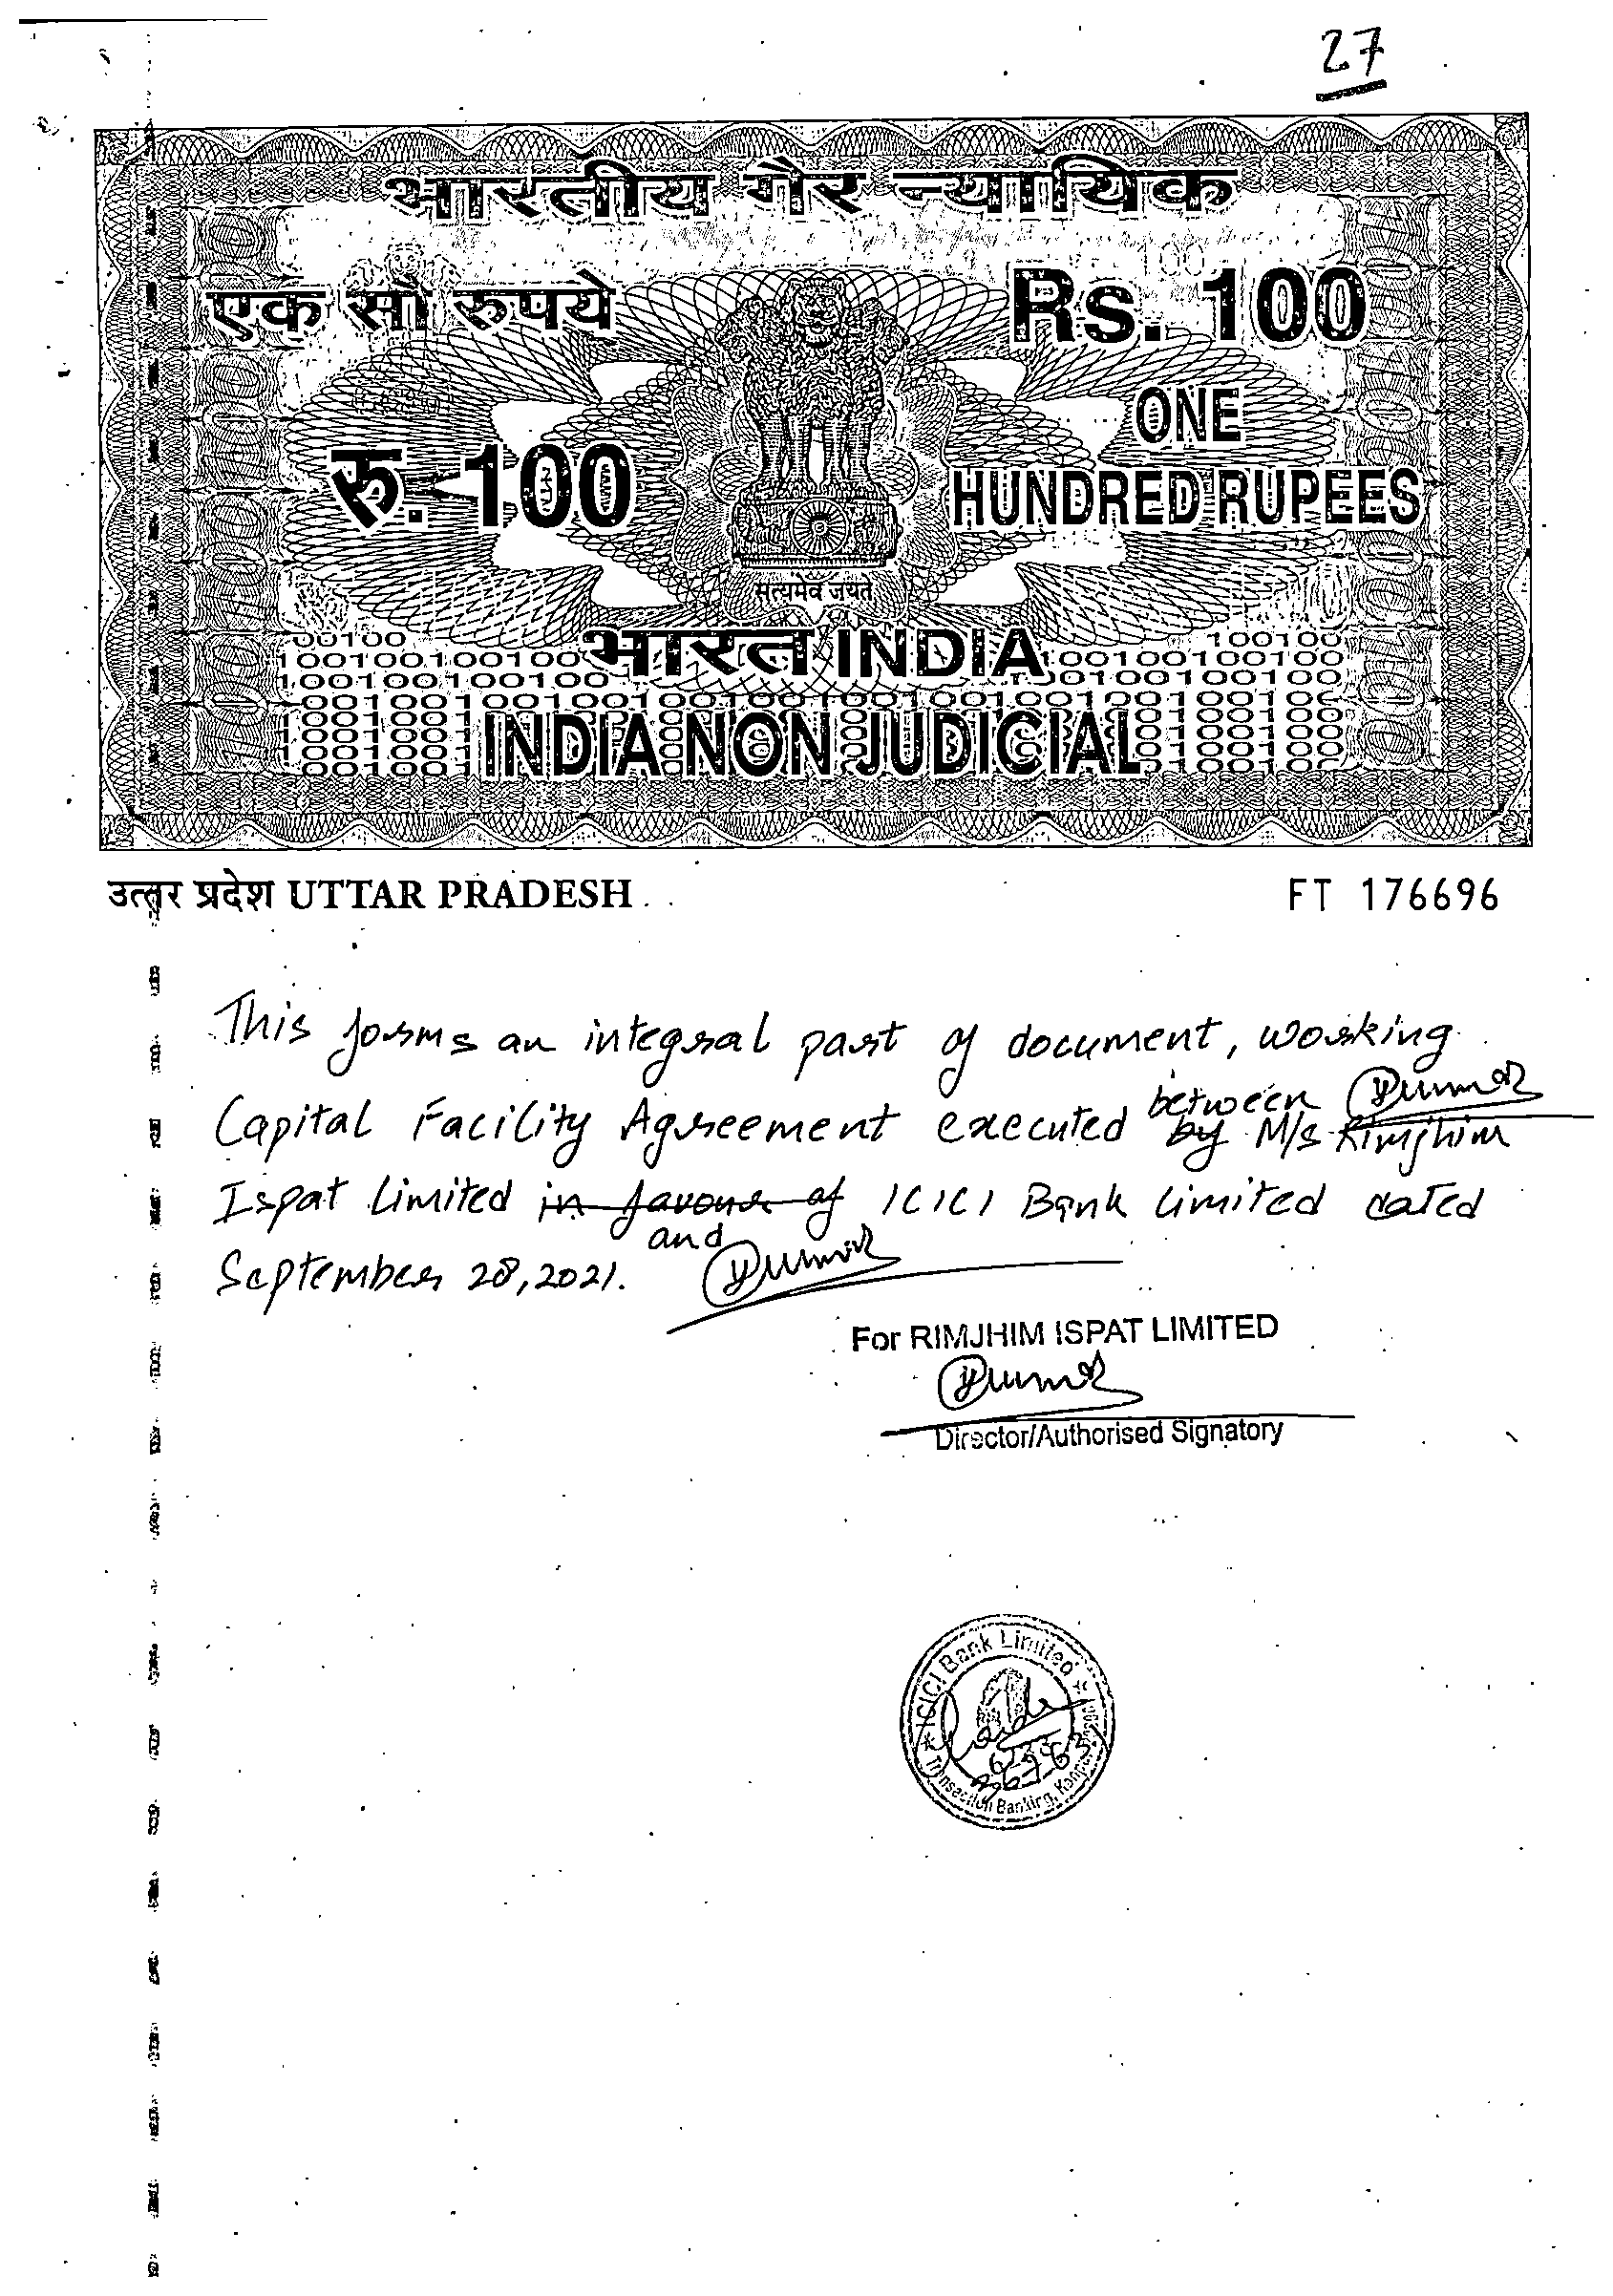 27
भारतीय गैर न्यायिक
एक सौ रुपये
Rs. 100
रु. 100
ONE
HUNDRED RUPEES
सत्यमेव जयते
भारत INDIA
INDIA NON JUDICIAL
उत्तर प्रदेश UTTAR PRADESH
FT 176696
This forms an integral part of document, working
Capital Facility Agreement executed between by M/s Rimjhim
Ispat Limited in favour of and ICICI Bank Limited dated
September 28, 2021.
For RIMJHIM ISPAT LIMITED
Director/Authorised Signatory
ICICI Bank Limited
Transaction Banking,